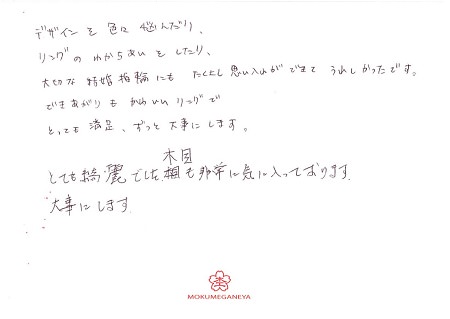 デザインを色々悩んだり、
リングのわかちあいをしたり、
大切な結婚指輪にもたくさん思い入れができてうれしかったです。
できあがりもかわいいリングで
とっても満足、ずっと大事にします。
木目
とても綺麗でした。相も非常に気に入っております。
大事にします
MOKUMEGANEYA